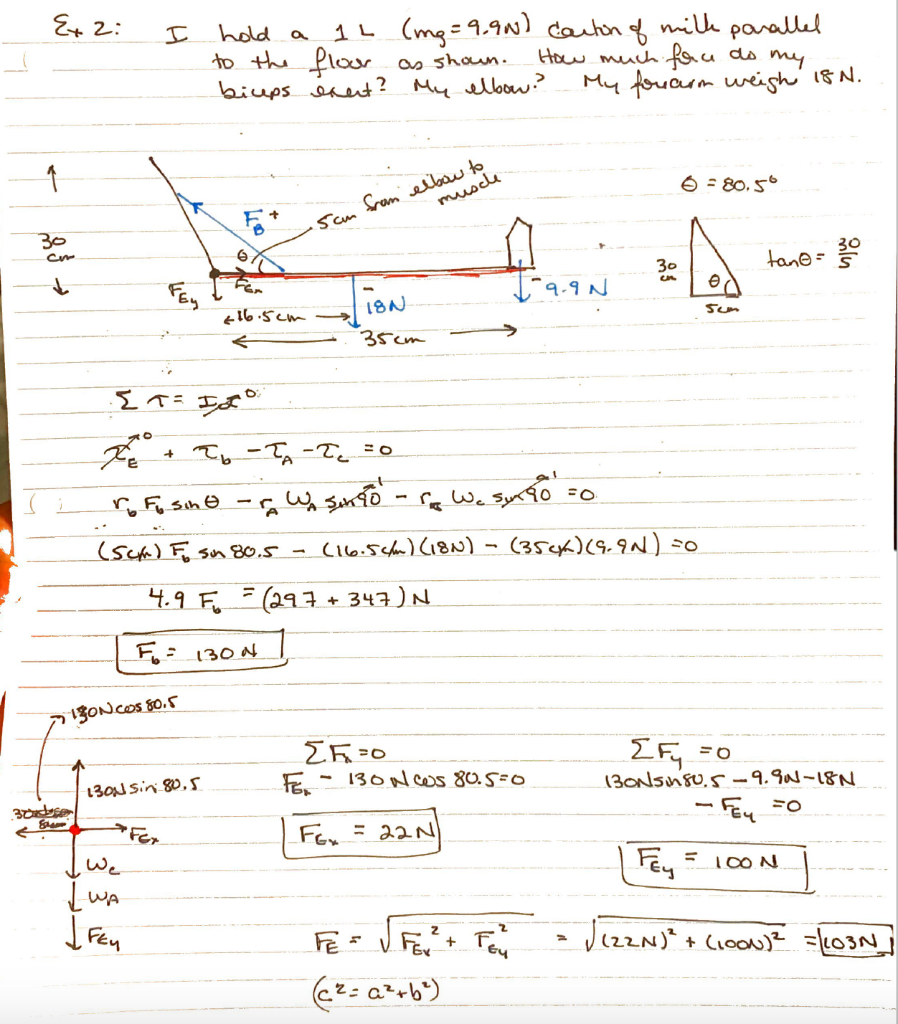 Ex 2: I hold a 1 L (mg = 9.9N) carton of milk parallel
to the floor as shown. How much force do my
biceps exert? My elbow? My forearm weighs 18 N.
↑
30
cm
↓
5cm from elbow to
muscle
F_B +
θ
F_Ey
F_Ex
←16.5cm→
- 18N
- 9.9 N
← 35 cm →
θ = 80.5°
30
cm
θ
5cm
tanθ = 30/5
Στ = Iα⁰
τ_E⁰ + τ_b - τ_A - τ_c = 0
r_b F_b sinθ - r_A W_A sin90¹ - r_c W_c sin90¹ = 0
(5cm) F_b sin 80.5 - (16.5cm)(18N) - (35cm)(9.9N) = 0
4.9 F_b = (297 + 347) N
F_b = 130 N
130N cos 80.5
130N sin 80.5
F_Ex
W_c
W_A
F_Ey
ΣF_x = 0
F_Ex - 130 N cos 80.5 = 0
F_Ex = 22 N
ΣF_y = 0
130N sin 80.5 - 9.9N - 18N
- F_Ey = 0
F_Ey = 100 N
F_E = √(F_Ex² + F_Ey²) = √((22N)² + (100N)²) = 103N
(c² = a² + b²)